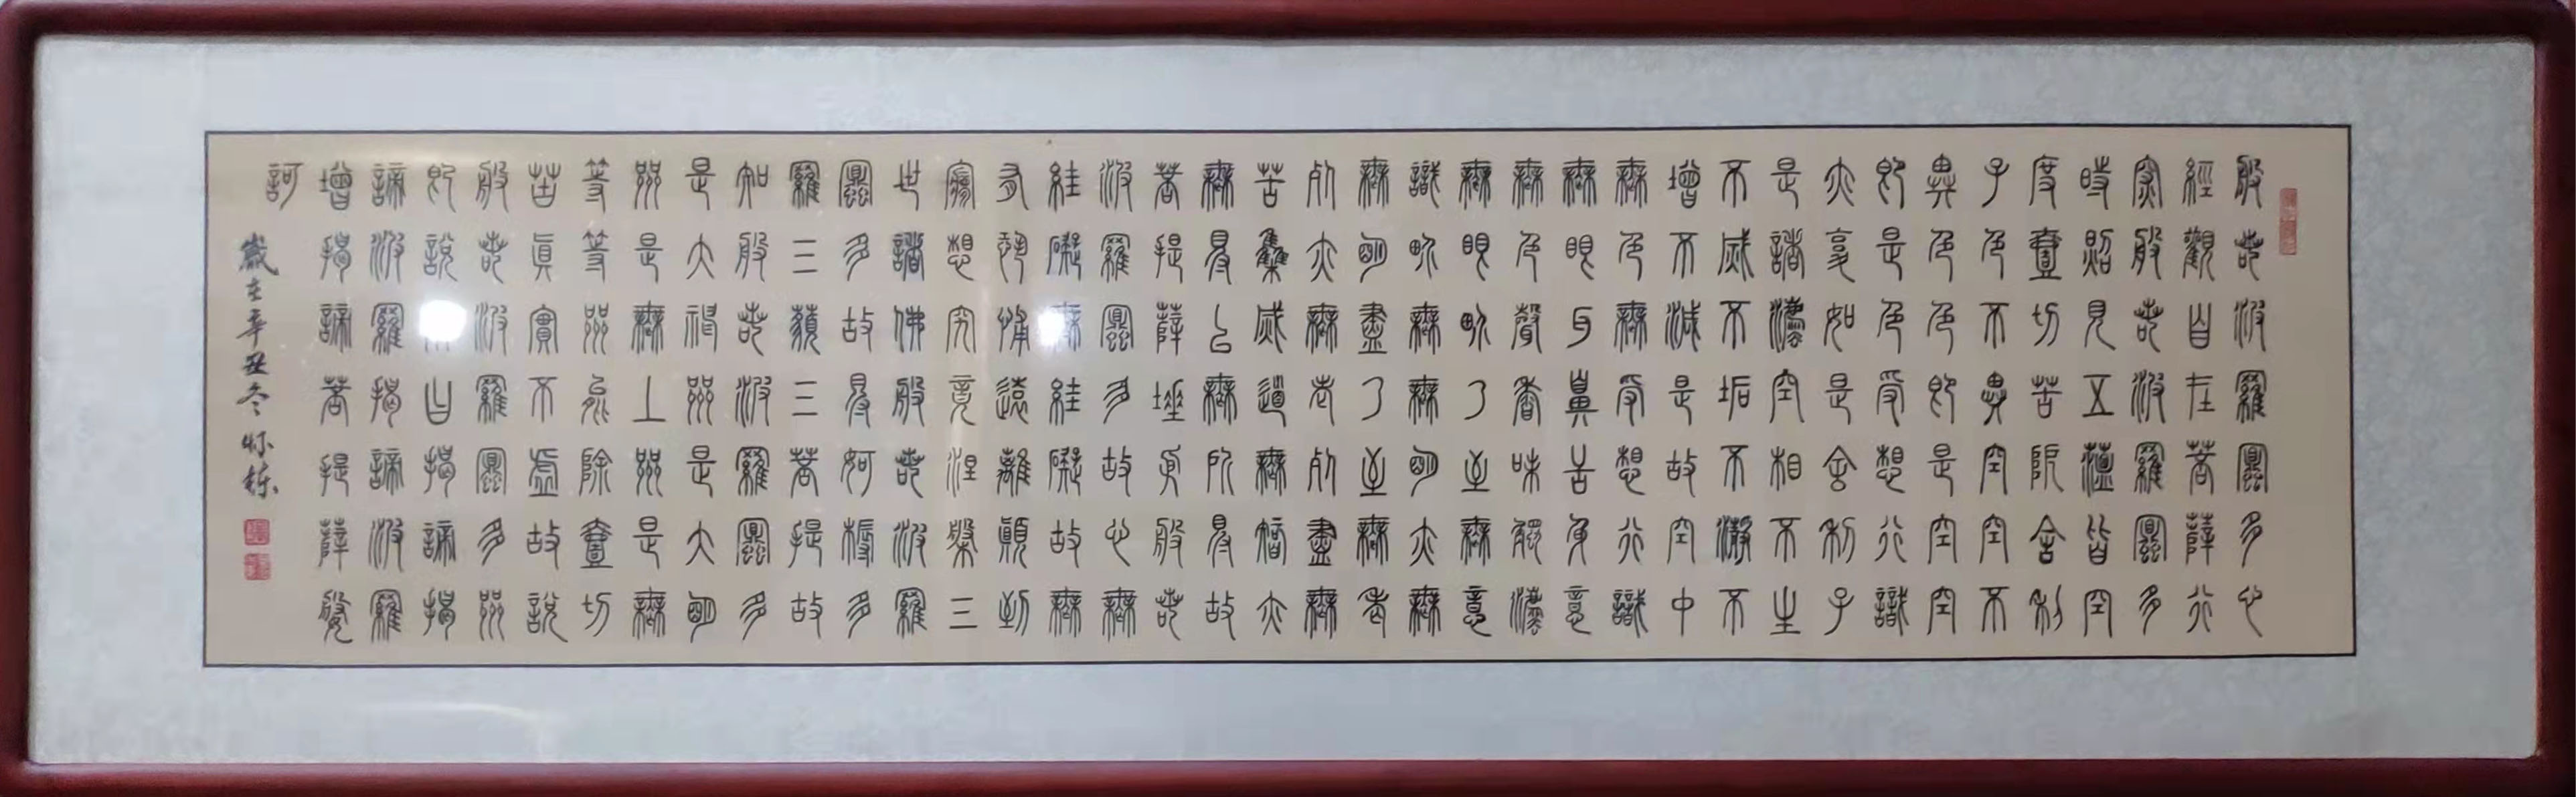 般若波羅蜜多心
經觀自在菩薩行
深般若波羅蜜多
時照見五蘊皆空
度壹切苦厄舍利
子色不異空空不
異色色即是空空
即是色受想行識
亦復如是舍利子
是諸法空相不生
不滅不垢不淨不
增不減是故空中
無色無受想行識
無眼耳鼻舌身意
無色聲香味觸法
無眼界乃至無意
識界無無明亦無
無明盡乃至無老
死亦無老死盡無
苦集滅道無智亦
無得以無所得故
菩提薩埵依般若
波羅蜜多故心無
罣礙無罣礙故無
有恐怖遠離顛倒
夢想究竟涅槃三
世諸佛般若波羅
蜜多故得阿耨多
羅三藐三菩提故
知般若波羅蜜多
是大神咒是大明
咒是無上咒是無
等等咒能除壹切
苦真實不虛故說
般若波羅蜜多咒
即說咒曰揭諦揭
諦波羅揭諦波羅
增揭諦菩提薩婆
訶
歲在辛丑冬